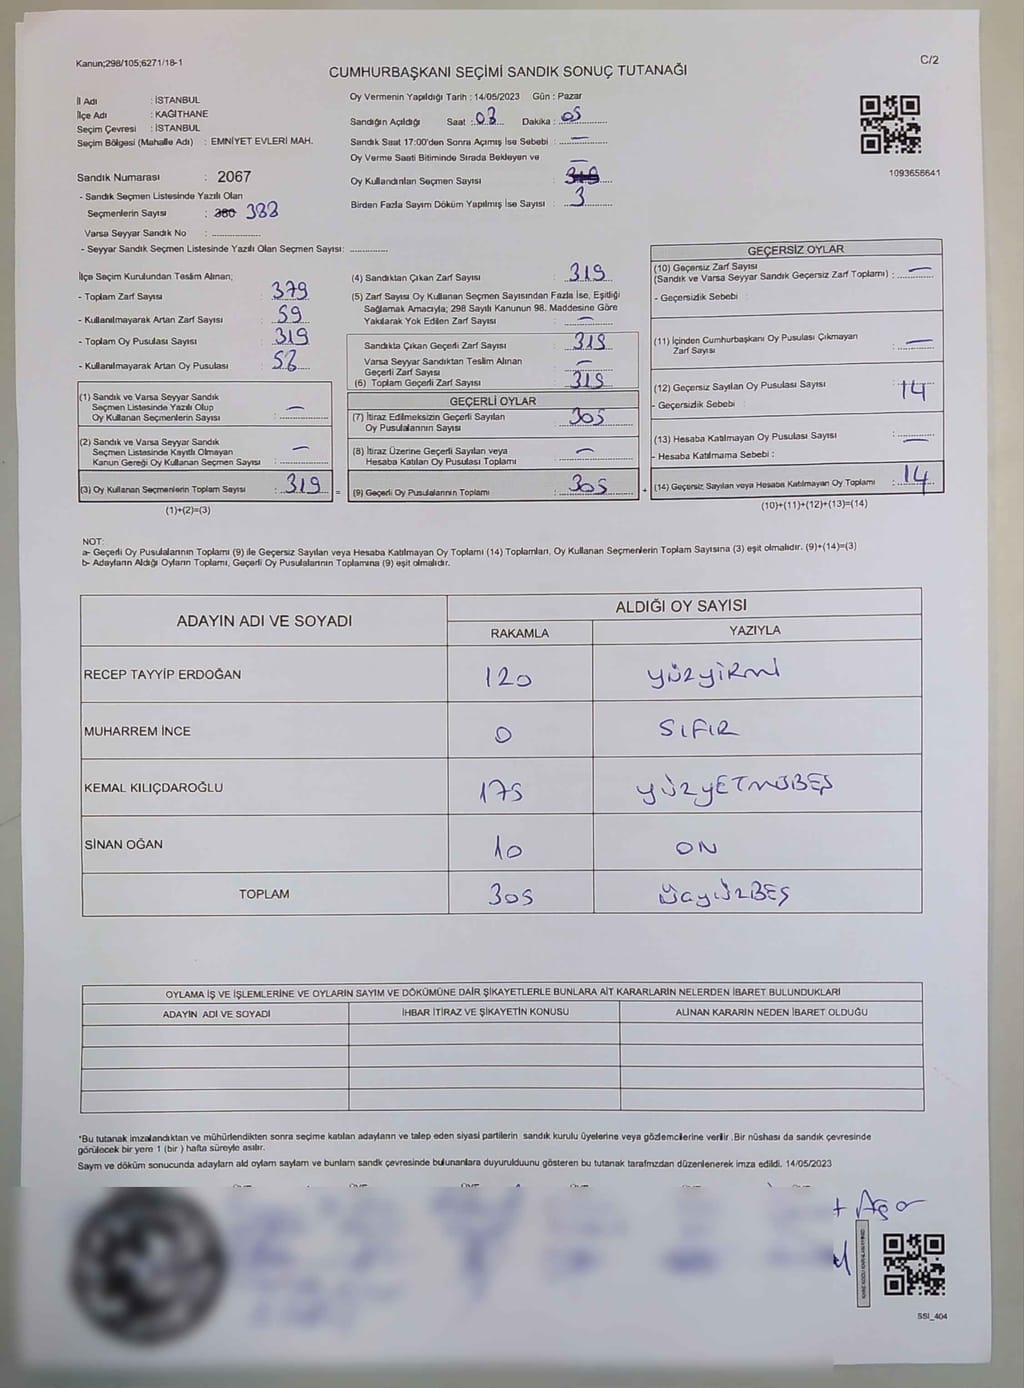 Kanun;298/105;6271/18-1
C/2
CUMHURBAŞKANI SEÇİMİ SANDIK SONUÇ TUTANAĞI
İl Adı : İSTANBUL
İlçe Adı : KAĞITHANE
Seçim Çevresi : İSTANBUL
Seçim Bölgesi (Mahalle Adı) : EMNİYET EVLERİ MAH.
Sandık Numarası : 2067
- Sandık Seçmen Listesinde Yazılı Olan
Seçmenlerin Sayısı : 380 383
Varsa Seyyar Sandık No : ..................
- Seyyar Sandık Seçmen Listesinde Yazılı Olan Seçmen Sayısı: ..............
Oy Vermenin Yapıldığı Tarih : 14/05/2023 Gün : Pazar
Sandığın Açıldığı Saat : 08 Dakika : 05
Sandık Saat 17:00'den Sonra Açımış İse Sebebi : —
Oy Verme Saati Bitiminde Sırada Bekleyen ve
Oy Kullandırılan Seçmen Sayısı : — 319
Birden Fazla Sayım Döküm Yapılmış İse Sayısı : 3
1093656641
İlçe Seçim Kurulundan Teslim Alınan;
- Toplam Zarf Sayısı : 379
- Kullanılmayarak Artan Zarf Sayısı : 59
- Toplam Oy Pusulası Sayısı : 319
- Kullanılmayarak Artan Oy Pusulası :
(1) Sandık ve Varsa Seyyar Sandık
Seçmen Listesinde Yazılı Olup
Oy Kullanan Seçmenlerin Sayısı : —
(2) Sandık ve Varsa Seyyar Sandık
Seçmen Listesinde Kayıtlı Olmayan
Kanun Gereği Oy Kullanan Seçmen Sayısı : —
(3) Oy Kullanan Seçmenlerin Toplam Sayısı : 319 =
(1)+(2)=(3)
(4) Sandıktan Çıkan Zarf Sayısı : 319
(5) Zarf Sayısı Oy Kullanan Seçmen Sayısından Fazla İse, Eşitliği
Sağlamak Amacıyla; 298 Sayılı Kanunun 98. Maddesine Göre
Yakılarak Yok Edilen Zarf Sayısı : —
Sandıkta Çıkan Geçerli Zarf Sayısı : 319
Varsa Seyyar Sandıktan Teslim Alınan
Geçerli Zarf Sayısı : —
(6) Toplam Geçerli Zarf Sayısı : 319
GEÇERLİ OYLAR
(7) İtiraz Edilmeksizin Geçerli Sayılan
Oy Pusulalarının Sayısı : 305
(8) İtiraz Üzerine Geçerli Sayılan veya
Hesaba Katılan Oy Pusulası Toplamı : —
(9) Geçerli Oy Pusulalarının Toplamı : 305 +
GEÇERSİZ OYLAR
(10) Geçersiz Zarf Sayısı
(Sandık ve Varsa Seyyar Sandık Geçersiz Zarf Toplamı) : —
- Geçersizlik Sebebi :
(11) İçinden Cumhurbaşkanı Oy Pusulası Çıkmayan
Zarf Sayısı : —
(12) Geçersiz Sayılan Oy Pusulası Sayısı : 14
- Geçersizlik Sebebi :
(13) Hesaba Katılmayan Oy Pusulası Sayısı : —
- Hesaba Katılmama Sebebi :
(14) Geçersiz Sayılan veya Hesaba Katılmayan Oy Toplamı : 14
(10)+(11)+(12)+(13)=(14)
NOT:
a- Geçerli Oy Pusulalarının Toplamı (9) ile Geçersiz Sayılan veya Hesaba Katılmayan Oy Toplamı (14) Toplamları, Oy Kullanan Seçmenlerin Toplam Sayısına (3) eşit olmalıdır. (9)+(14)=(3)
b- Adayların Aldığı Oyların Toplamı, Geçerli Oy Pusulalarının Toplamına (9) eşit olmalıdır.
ADAYIN ADI VE SOYADI ALDIĞI OY SAYISI
RAKAMLA YAZIYLA
RECEP TAYYİP ERDOĞAN 120 yüzyirmi
MUHARREM İNCE 0 SIFIR
KEMAL KILIÇDAROĞLU 175 YÜZYETMİŞBEŞ
SİNAN OĞAN 10 ON
TOPLAM 305 ÜçyüzBEŞ
OYLAMA İŞ VE İŞLEMLERİNE VE OYLARIN SAYIM VE DÖKÜMÜNE DAİR ŞİKAYETLERLE BUNLARA AİT KARARLARIN NELERDEN İBARET BULUNDUKLARI
ADAYIN ADI VE SOYADI İHBAR İTİRAZ VE ŞİKAYETİN KONUSU ALINAN KARARIN NEDEN İBARET OLDUĞU
*Bu tutanak imzalandıktan ve mühürlendikten sonra seçime katılan adayların ve talep eden siyasi partilerin sandık kurulu üyelerine veya gözlemcilerine verilir .Bir nüshası da sandık çevresinde
görülecek bir yere 1 (bir ) hafta süreyle asılır.
Sayım ve döküm sonucunda adayların ald oyların sayıları ve bunlarn sandk çevresinde bulunanlara duyurulduunu gösteren bu tutanak tarafmzdan düzenlenerek imza edildi. 14/05/2023
SSI_404